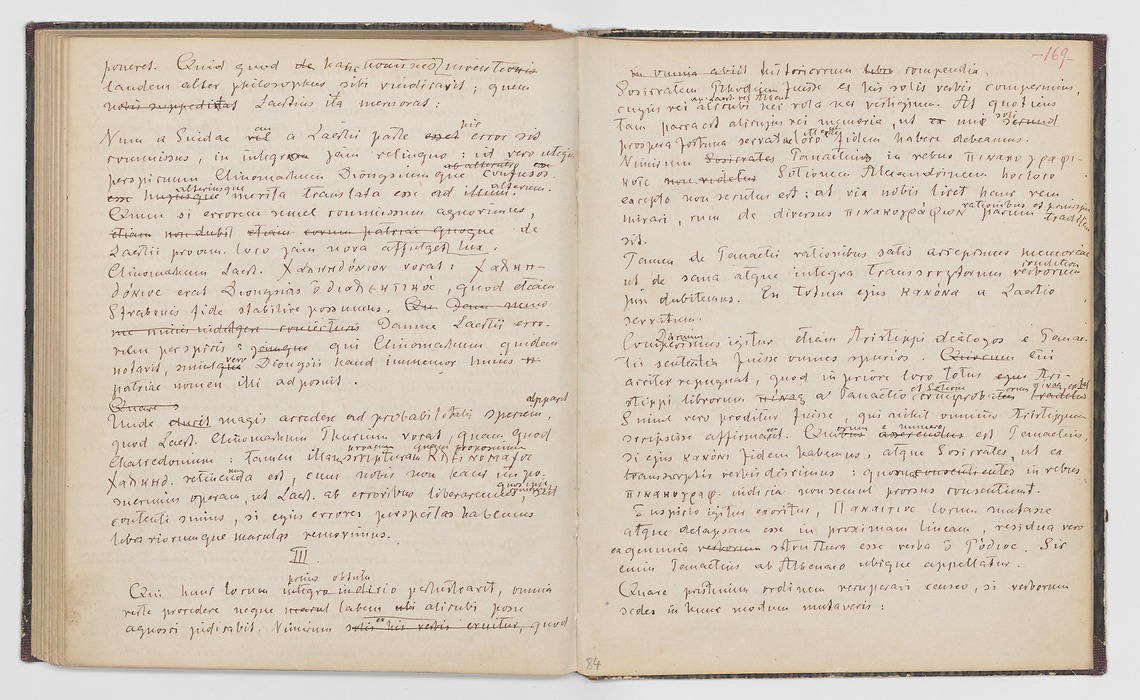 poneret. Quid quod de hanc nominis inventionis
tandem alter philosophus sibi vindicavit; quem
nobis suppeditat Laertius ita memorat:
Num a Suidae vel an a Laertii parte esset error sit
commissus, in integrum jam relinquo: id vero utique
perspicuum Clinomachum Dionysiumque confusos
esse alteriusque merita translata esse ad illum. alterum.
Quum si errorem semel commissum agnovimus,
etiam non dubit etiam eorum patriae quoque de
Laertii prooem. loco jam nova affulget lux.
Clinomachum Laert. Χαλκηδόνιον vocat: Χαλκη-
δόνιος erat Dionysius ὁ διαλεκτικός, quod etiam
Strabonis fide stabilire possumus.
Damne Laertii erro-
rem perspicis? qui Clinomachum quidem
notavit, simulque vero Dionysii haud immemor hujus
patriae nomen illi adposuit.
Quare
Unde magis accedere ad probabilitatis speciem, apparet
quod Laert. Clinomachum Thurium vocat, quam quod
Chalcedonium: tamen illam scripturam Κλεινόμαχος
Χαλκηδ. retinenda est, cum nobis non eam im po-
suerimus operam, ut Laert. ab erroribus liberaremus, sed
contenti simus, si ejus errores perspectos habemus
librariorumque maculas removimus.
III.
Qui hunc locum primo obtutu integro indicio perlustravit, omnia
recte procedere neque labem ubi alicubi posse
agnosci judicabit. Nimirum solis ex his verbis eruitur, quod
-169-
in omnia abiit historicorum libro compendia,
Sosicratem Rhodium fuisse ex his solis verbis comperimus,
cujus rei alicubi nec vola nec vestigium. At quotiens
tam parca est alicujus rei memoria, ut ex uni soli secund
prospera fortuna servatae loco fidem habere debeamus.
Nimirum Sosicrates Panaetius in rebus πινακογραφι-
κοῖς non videtur Sotionem Alexandrinum hoc loco
excepto non secutus est: at vix nobis licet hanc rem
mirari, cum de diversis πινακογράφων rationibus et principiis parum traditum
sit.
Tamen de Panaetii rationibus satis accepimus memoriae
ut de sana atque integra transscriptorum verborum conditione
jure dubitemus. En totum ejus κανόνα a Laertio
servatum.
Comperimus igitur etiam Aristippi dialogos e Panae-
tii sententia fuisse omnes spurios. Quocum eui
acriter repugnat, quod in priore loco totus ejus Ari-
stippi librorum πίναξ a Panaetio et Sotione comprobatus
Simul vero proditur fuisse, qui nihil omnino Aristippum
scripsisse affirmaret. Quorum e numero asserendus est Panaetius,
si ejus κανόνι fidem habemus, atque Sosicrates, ut ex
transscriptis verbis discimus: quorum in rebus
πινακογραφ. indicia non semel prorsus consentiunt.
Suspicio igitur exoritur, Παναίτιος locum mutasse
atque delapsam esse in proximam lineam, residua vero
ex genuina verborum structura esse verba ὁ Ῥόδιος. Sic
enim Panaetius ab Athenaeo ubique appellatur.
Quare pristinum ordinem recuperari censeo, si verborum
sedes in hunc modum mutaveris:
84